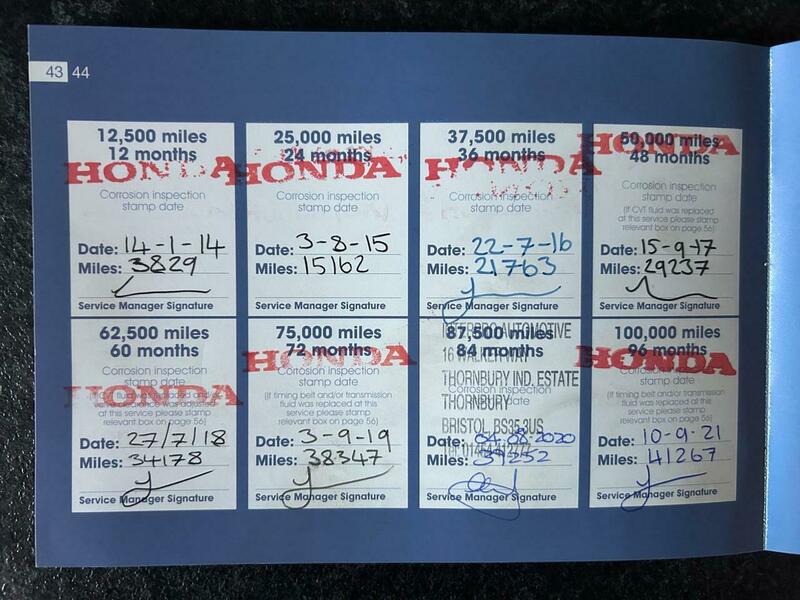 43 44
12,500 miles
12 months
HONDA
Corrosion inspection
stamp date
Date: 14-1-14
Miles: 3829
Service Manager Signature
25,000 miles
24 months
HONDA
Corrosion inspection
stamp date
Date: 3-8-15
Miles: 15162
Service Manager Signature
37,500 miles
36 months
HONDA
Corrosion inspection
stamp date
Date: 22-7-16
Miles: 21763
Service Manager Signature
50,000 miles
48 months
HONDA
Corrosion inspection
stamp date
(If CVT fluid was replaced
at this service please stamp
relevant box on page 56)
Date: 15-9-17
Miles: 29237
Service Manager Signature
62,500 miles
60 months
Corrosion inspection
stamp date
HONDA
at this service please stamp
relevant box on page 56)
Date: 27/7/18
Miles: 34178
Service Manager Signature
75,000 miles
72 months
HONDA
Corrosion inspection
stamp date
(If timing belt and/or transmission
fluid was replaced at this
service please stamp
relevant box on page 56)
Date: 3-9-19
Miles: 38347
Service Manager Signature
AUTOMOTIVE
87,500 miles
84 months
THORNBURY IND. ESTATE
Corrosion inspection
stamp date
THORNBURY
BRISTOL BS35 3US
Date: 04-08-2020
Miles: 39252
Service Manager Signature
100,000 miles
96 months
HONDA
Corrosion inspection
stamp date
(If timing belt and/or transmission
fluid was replaced at this
service please stamp
relevant box on page 56)
Date: 10-9-21
Miles: 41267
Service Manager Signature